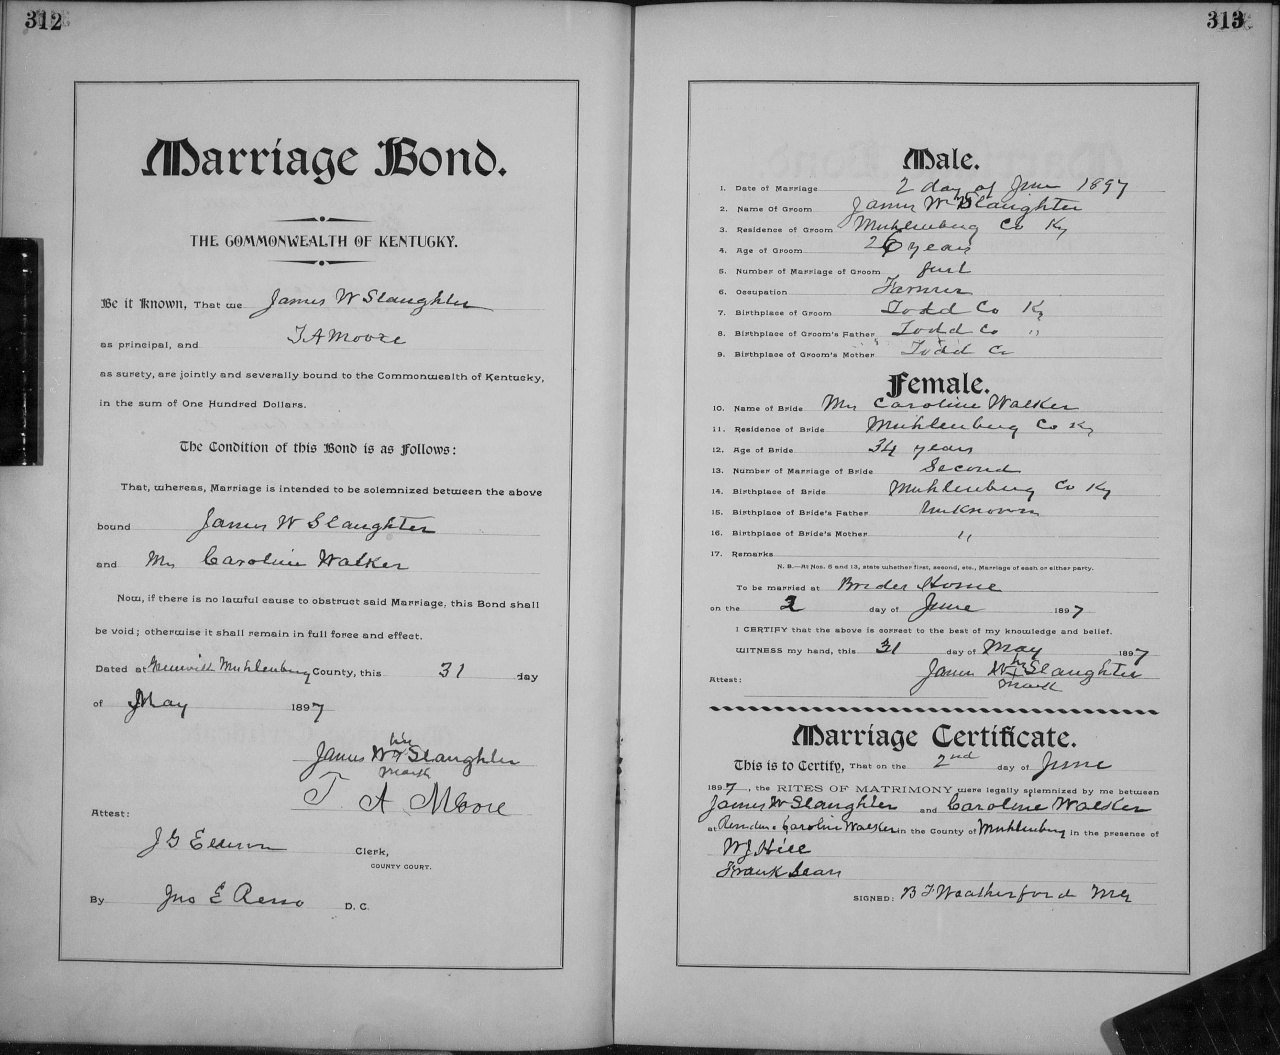 312
Marriage Bond.
THE COMMONWEALTH OF KENTUCKY.
Be it Known, That we James W Slaughter
as principal, and T A Moore
as surety, are jointly and severally bound to the Commonwealth of Kentucky,
in the sum of One Hundred Dollars.
The Condition of this Bond is as Follows:
That, whereas, Marriage is intended to be solemnized between the above
bound James W Slaughter
and Mrs Caroline Walker
Now, if there is no lawful cause to obstruct said Marriage, this Bond shall
be void; otherwise it shall remain in full force and effect.
Dated at Greenville Muhlenburg County, this 31 day
of May 1897
his
James W X Slaughter
mark
T. A Moore
Attest:
J G Clerk,
COUNTY COURT.
By Jno E Reno D. C.
313
Male.
1. Date of Marriage 2 day of June 1897
2. Name Of Groom James W Slaughter
3. Residence of Groom Muhlenburg Co Ky
4. Age of Groom 26 years
5. Number of Marriage of Groom first
6. Occupation Farmer
7. Birthplace of Groom Todd Co Ky
8. Birthplace of Groom's Father Todd Co "
9. Birthplace of Groom's Mother Todd Co
Female.
10. Name of Bride Mrs Caroline Walker
11. Residence of Bride Muhlenburg Co Ky
12. Age of Bride 34 years
13. Number of Marriage of Bride Second
14. Birthplace of Bride Muhlenburg Co Ky
15. Birthplace of Bride's Father Unknown
16. Birthplace of Bride's Mother "
17. Remarks
N. B.—At Nos. 5 and 13, state whether first, second, etc., Marriage of each or either party.
To be married at Brides Home
on the 2 day of June 1897
I CERTIFY that the above is correct to the best of my knowledge and belief.
WITNESS my hand, this 31 day of May 1897
his
James W X Slaughter
mark
Attest:
Marriage Certificate.
This is to Certify, That on the 2nd day of June
1897, the RITES OF MATRIMONY were legally solemnized by me between
James W Slaughter and Caroline Walker
at Caroline Walker in the County of Muhlenburg in the presence of
W J Hill
Frank
SIGNED: B F Weatherford MG